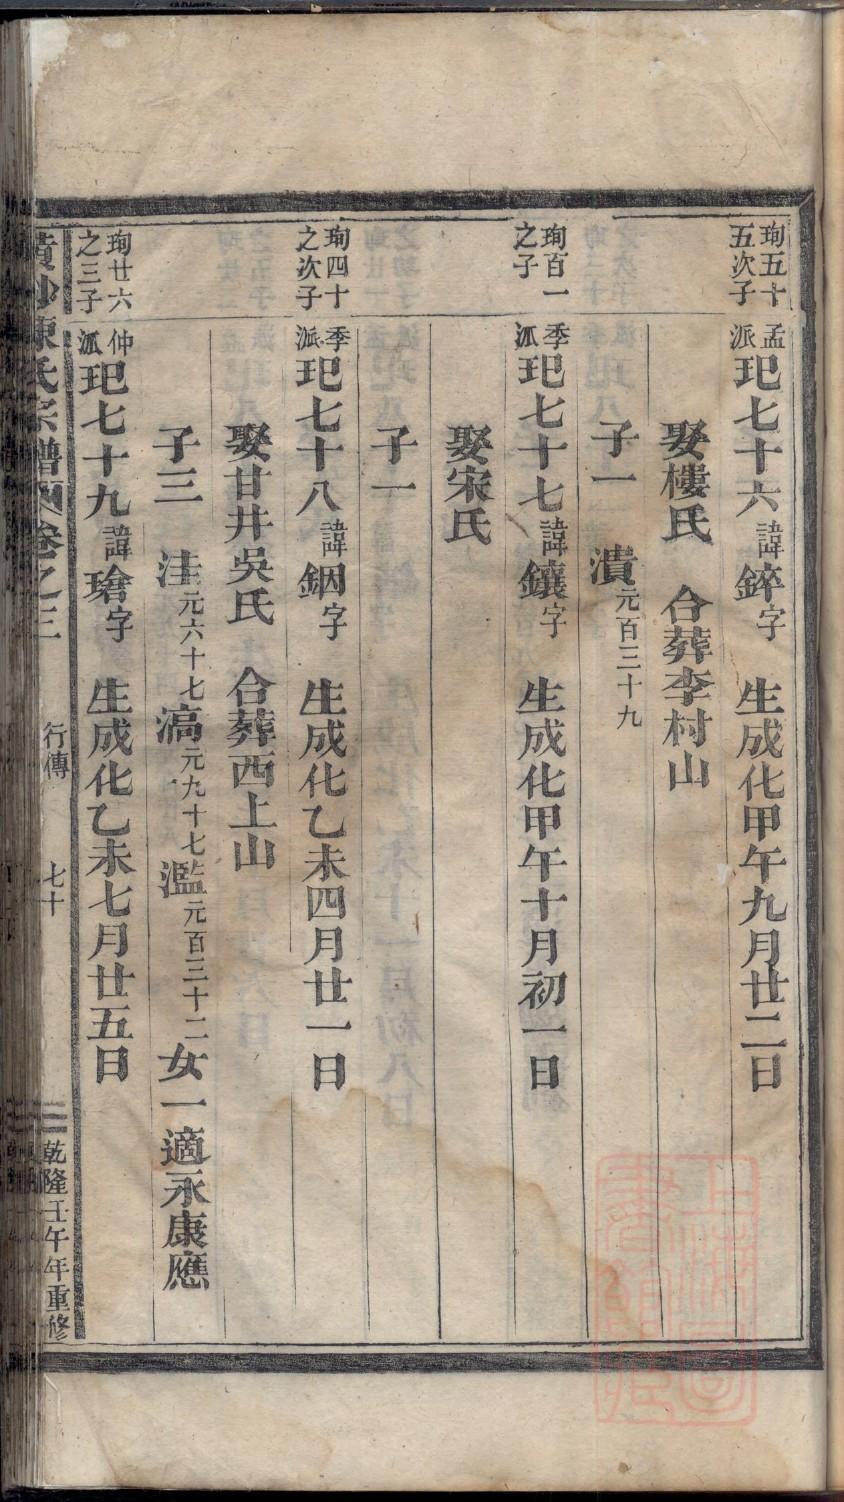 珣五十五次子 孟派 玘七十六 諱錊字 生成化甲午九月廿二日
娶樓氏 合葬李村山
子一 潰元百三十九
珣百一之子 季派 玘七十七 諱鑲字 生成化甲午十月初一日
娶宋氏
子一
珣四十之次子 季派 玘七十八 諱銦字 生成化乙未四月廿一日
娶甘井吳氏 合葬西上山
子三 洼元六十七 滈元九十七 濫元百三十二 女一適永康應
珣廿六之三子 仲派 玘七十九 諱瑲字 生成化乙未七月廿五日
陳氏宗譜 卷之三 行傳 七十 乾隆壬午年重修
上海圖書館藏